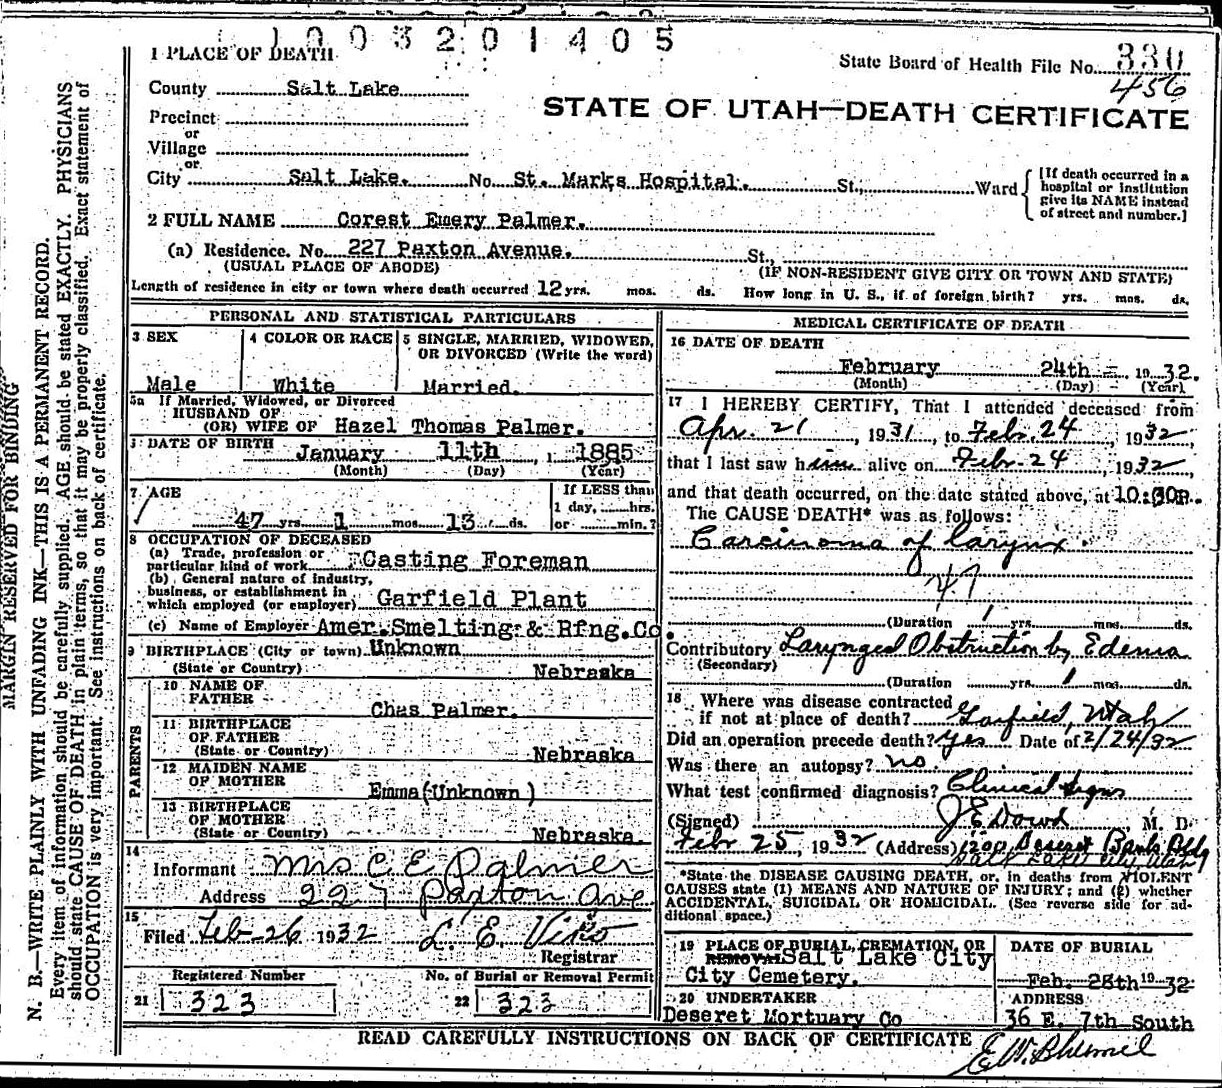 1003201405
1 PLACE OF DEATH
State Board of Health File No. 330
456
County Salt Lake
STATE OF UTAH—DEATH CERTIFICATE
Precinct
or
Village
or
City Salt Lake. No. St. Marks Hospital. St., Ward
[If death occurred in a hospital or institution give its NAME instead of street and number.]
2 FULL NAME Corest Emery Palmer.
(a) Residence. No. 227 Paxton Avenue. St.,
(USUAL PLACE OF ABODE) (IF NON-RESIDENT GIVE CITY OR TOWN AND STATE)
Length of residence in city or town where death occurred 12 yrs. mos. ds. How long in U. S., if of foreign birth? yrs. mos. ds.
PERSONAL AND STATISTICAL PARTICULARS
3 SEX
Male
4 COLOR OR RACE
White
5 SINGLE, MARRIED, WIDOWED,
OR DIVORCED (Write the word)
Married.
5a If Married, Widowed, or Divorced
HUSBAND OF
(OR) WIFE OF Hazel Thomas Palmer.
DATE OF BIRTH
January 11th, 1885
(Month) (Day) (Year)
7 AGE
47 yrs. 1 mos. 13 ds.
If LESS than
1 day, hrs.
or min.?
8 OCCUPATION OF DECEASED
(a) Trade, profession or
particular kind of work Casting Foreman
(b) General nature of industry,
business, or establishment in
which employed (or employer) Garfield Plant
(c) Name of Employer Amer. Smelting & Rfng. Co.
9 BIRTHPLACE (City or town) Unknown
(State or Country) Nebraska
PARENTS
10 NAME OF
FATHER Chas Palmer.
11 BIRTHPLACE
OF FATHER
(State or Country) Nebraska
12 MAIDEN NAME
OF MOTHER Emma (Unknown)
13 BIRTHPLACE
OF MOTHER
(State or Country) Nebraska.
14
Informant Mrs C. E. Palmer
Address 227 Paxton Ave.
15
Filed Feb-26 1932 L. E. Viko
Registrar
Registered Number
21 323
No. of Burial or Removal Permit
22 323
MEDICAL CERTIFICATE OF DEATH
16 DATE OF DEATH
February 24th 1932.
(Month) (Day) (Year)
17 I HEREBY CERTIFY, That I attended deceased from
Apr. 21, 1931, to Feb. 24 1932,
that I last saw him alive on Febr. 24, 1932,
and that death occurred, on the date stated above, at 10:30P.
The CAUSE DEATH* was as follows:
Carcinoma of larynx.
47
(Duration 1 yrs. mos. ds.
Contributory Laryngeal Obstruction by Edema
(Secondary)
(Duration yrs. 1 mos. ds.
18 Where was disease contracted
if not at place of death? Garfield, Utah
Did an operation precede death? Yes Date of 2/24/32
Was there an autopsy? no.
What test confirmed diagnosis? Clinical Signs
(Signed) J E Dowd M. D.
Febr 25, 1932 (Address) 1200 Deseret Bank Bldg
Salt Lake City, Utah
*State the DISEASE CAUSING DEATH, or, in deaths from VIOLENT
CAUSES state (1) MEANS AND NATURE OF INJURY; and (2) whether
ACCIDENTAL, SUICIDAL OR HOMICIDAL. (See reverse side for ad-
ditional space.)
19 PLACE OF BURIAL, CREMATION, OR
REMOVAL Salt Lake City
City Cemetery.
DATE OF BURIAL
Feb. 28th 1932
20 UNDERTAKER
Deseret Mortuary Co
ADDRESS
36 E. 7th South
READ CAREFULLY INSTRUCTIONS ON BACK OF CERTIFICATE
MARGIN RESERVED FOR BINDING
N. B.—WRITE PLAINLY WITH UNFADING INK—THIS IS A PERMANENT RECORD.
Every item of information should be carefully supplied. AGE should be stated EXACTLY. PHYSICIANS
should state CAUSE OF DEATH in plain terms, so that it may be properly classified. Exact statement of
OCCUPATION is very important. See instructions on back of certificate.